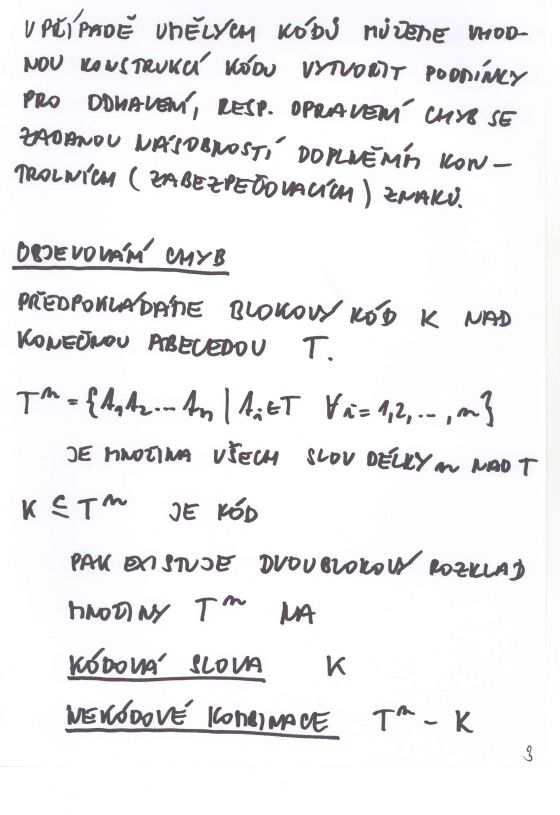 V PŘÍPADĚ UMĚLÝCH KÓDŮ MŮŽEME VHOD-
NOU KONSTRUKCÍ KÓDU VYTVOŘIT PODMÍNKY
PRO ODHALENÍ, RESP. OPRAVENÍ CHYB SE
ZADANOU NÁSOBNOSTÍ DOPLNĚNÍM KON-
TROLNÍCH (ZABEZPEČOVACÍCH) ZNAKŮ.
OBJEVOVÁNÍ CHYB
PŘEDPOKLÁDÁME BLOKOVÝ KÓD K NAD
KONEČNOU ABECEDOU T.
Tⁿ = {s₁s₂...sₙ | sᵢ ∈ T ∀i = 1,2,...,n}
JE MNOŽINA VŠECH SLOV DÉLKY n NAD T
K ⊆ Tⁿ JE KÓD
PAK EXISTUJE DVOUBLOKOVÝ ROZKLAD
MNOŽINY Tⁿ NA
KÓDOVÁ SLOVA K
NEKÓDOVÉ KOMBINACE Tⁿ - K
9